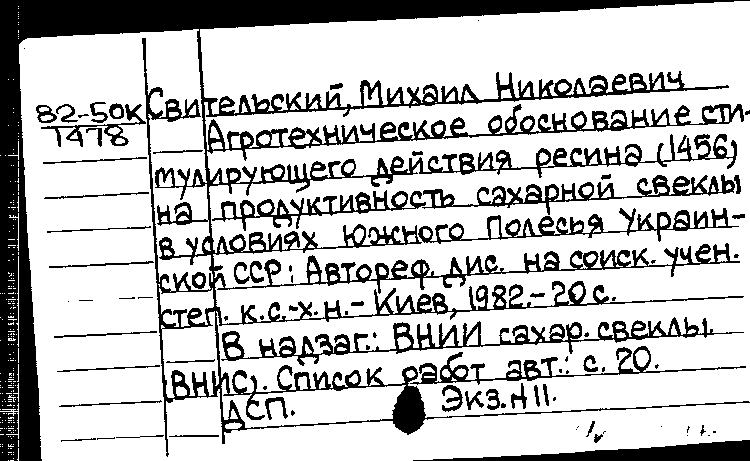 82-50к Свительский, Михаил Николаевич
1478 Агротехническое обоснование сти-
мулирующего действия ресина (1456)
на продуктивность сахарной свеклы
в условиях Южного Полесья Украин-
ской ССР: Автореф. дис. на соиск. учен.
степ. к.с.-х.н.- Киев, 1982.- 20 с.
В надзаг.: ВНИИ сахар. свеклы.
(ВНИС). Список работ авт.: с. 20.
ДСП. Экз. № 11.